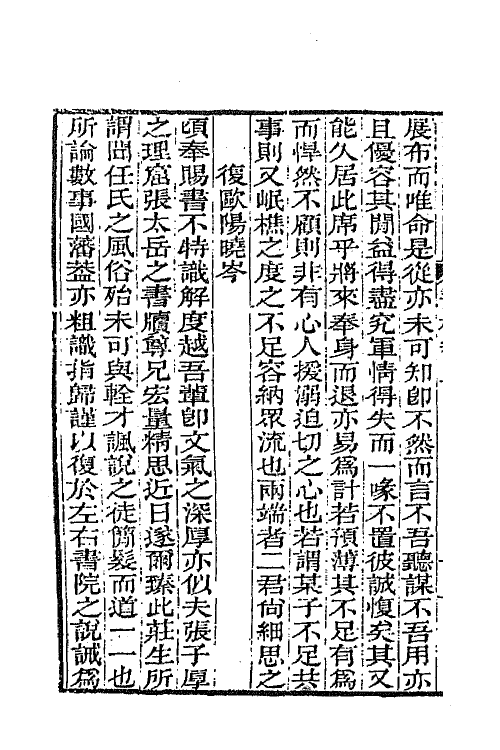 展布而唯命是從亦未可知卽不然而言不吾聽謀不吾用亦
且優容其閒益得盡究軍情得失而一喙不置彼誠愎矣其又
能久居此席乎將來奉身而退亦易爲計若預薄其不足有爲
而悍然不顧則非有心人援溺迫切之心也若謂某子不足共
事則又岷樵之度之不足容納眾流也兩端者二君尙細思之
復歐陽曉岑
頃奉賜書不特識解度越吾輩卽文氣之深厚亦似夫張子厚
之理窟張太岳之書牘尊兄宏量精思近日遂爾臻此莊生所
謂尙任氏之風俗殆未可與輇才諷說之徒簡髮而道一一也
所論數事國藩葢亦粗識指歸謹以復於左右書院之說誠爲